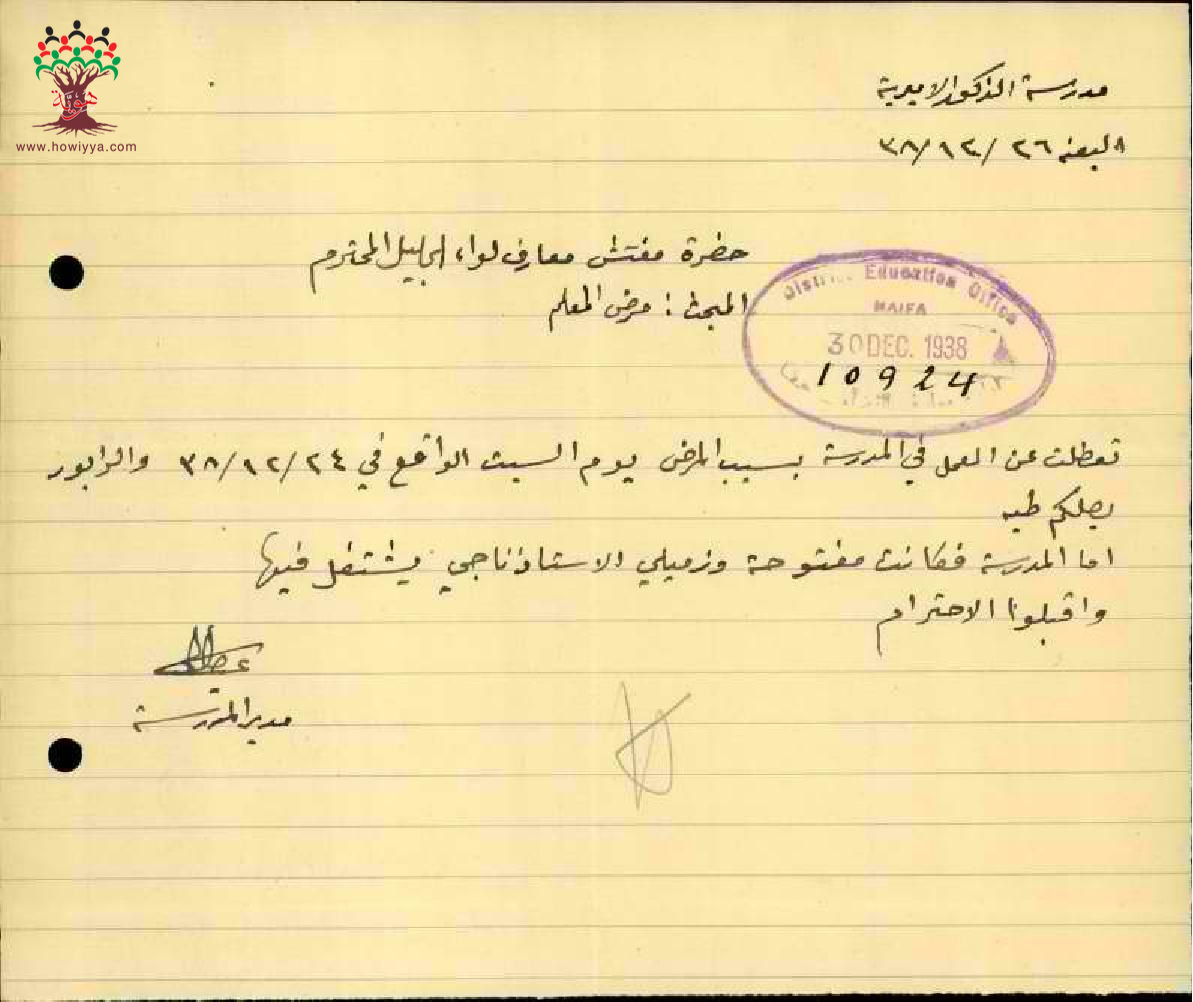 هوية
www.howiyya.com
مدرسة الذكور الاميرية
البعنه ٢٦ /١٢/ ٣٨
حضرة مفتش معارف لواء الجليل المحترم
المبحث : مرض المعلم
District Education Office
HAIFA
30 DEC. 1938
10924
تعطلت عن العمل في المدرسة بسبب المرض يوم السبت الواقع في ٢٤ /١٢/ ٣٨ والرابور
يصلكم طيه
اما المدرسة فكانت مفتوحة وزميلي الاستاذ ناجي يشتغل فيها
واقبلوا الاحترام
مدير المدرسة